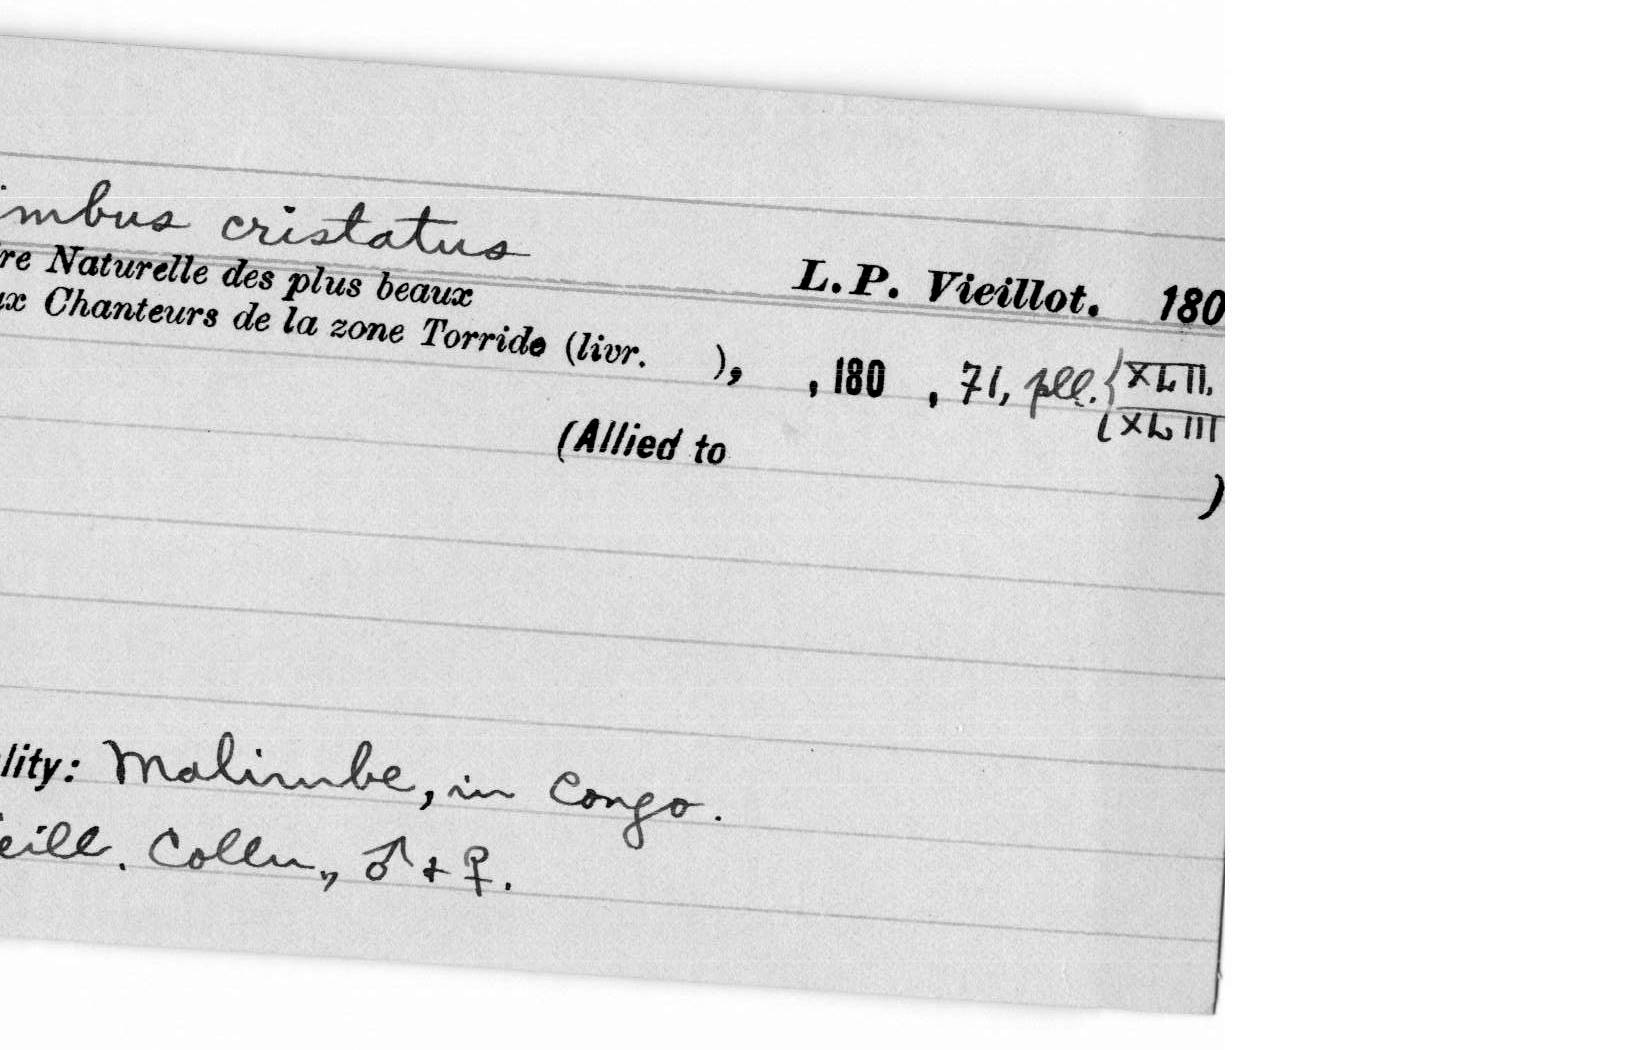 imbus cristatus
re Naturelle des plus beaux L.P. Vieillot. 180
ux Chanteurs de la zone Torride (livr. ), , 180 , 71, pll. { XLII.
XLIII
(Allied to )
lity: Malimbe, in Congo.
eill. Colln., ♂ + ♀.